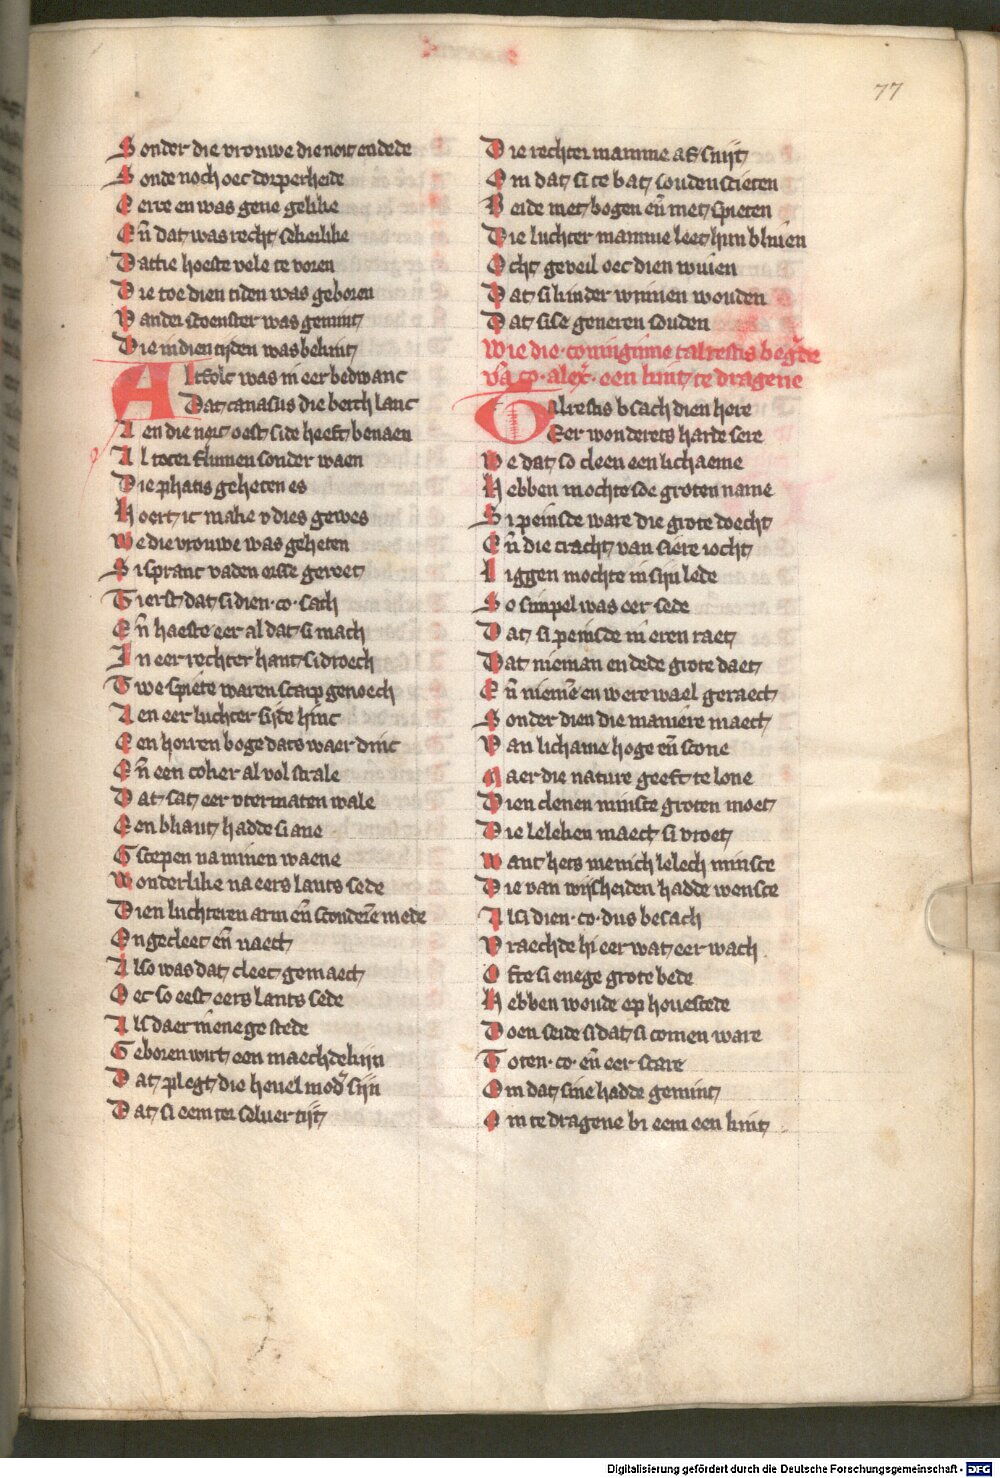 77
Sonder die vrouwe die noit en dede
Sonde noch oec dorperheide
Eerre en was gene gelike
En̄ dat was recht sekerlike
Dattie hoeste vele te voren
Die toe dien tiden was geboren
Vander stoenster was gemint
Die in dien tyden was bekint
Al tfolc was in eer bedwanc
Dat canasus die berch lanc
Aen die noit oest side heeft benaen
Al totter flumen sonder waen
Die phatis geheten es
Hoert ic make v dies gewes
We die vrouwe was geheten
Si spranc vaden orsse gereet
Tierst dat si dien ·co· sach
En̄ haeste eer al dat si mach
In eer rechter hant si droech
Twe spiete waren scarp genoech
Aen eer luchter side hinc
Een horren boge dats waer dinc
En̄ een coker al vol strale
Dat sat eer vtermaten wale
Een bliaut hadde si ane
Gscepen na minen waene
Wonderlike na eers lants sede
Dien luchteren arm en̄ scoudere mede
Ongecleet en̄ naect
Also was dat cleet gemaect
Oec so eest eers lants sede
Als daer in enege stede
Geboren wirt een maechdekijn
Dat plegt die heuel mod' sijn
Dat si eem ter seluer tijt
Die rechter mamme af snijt
Om dat si te bat souden scieten
Beide met bogen en̄ met spieten
Die luchter mamme leet hun bliuen
Ocht geveil oec dien wiuen
Dat si kinder winnen wouden
Dat si se generen souden
Wie die coninginne talrestis beg'de
va co· alex'· een kint te dragene
Talrestis bsach dien here
Eer wonderets harde sere
We dat so cleen een lichaeme
Hebben mochte sde groten name
Si peinsde ware die grote doecht
En̄ die cracht van siere iocht
Liggen mochte in sijn lede
So simpel was eer sede
Dat si peinsde in eren raet
Dat nieman en dede grote daet
En̄ nieme en were wael geraect
Sonder dien die maniere maect
Van lichame hoge en̄ scone
Maer die nature geeft te lone
Dien clenen minste groten moet
Die leleken maect si vroet
Want hets menich lelech minsce
Die van wijsheiden hadde wensce
Alsi dien ·co· dus besach
Vraechde hi eer wat eer wach
Ofte si enege grote bede
Hebben woude ep houescede
Doen seide si dat si comen ware
Toten ·co· en̄ eer scare
Om dat sine hadde gemint
Om te dragene bi eem een kint
Digitalisierung gefördert durch die Deutsche Forschungsgemeinschaft - DFG